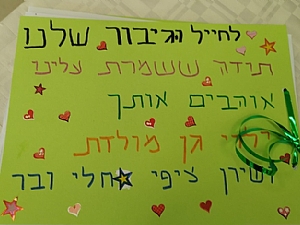 לחייל הגיבור שלנו
תודה ששמרת עלינו
אוהבים אותך
ילדי גן מולדת
ושירן ציפי חלי ובר